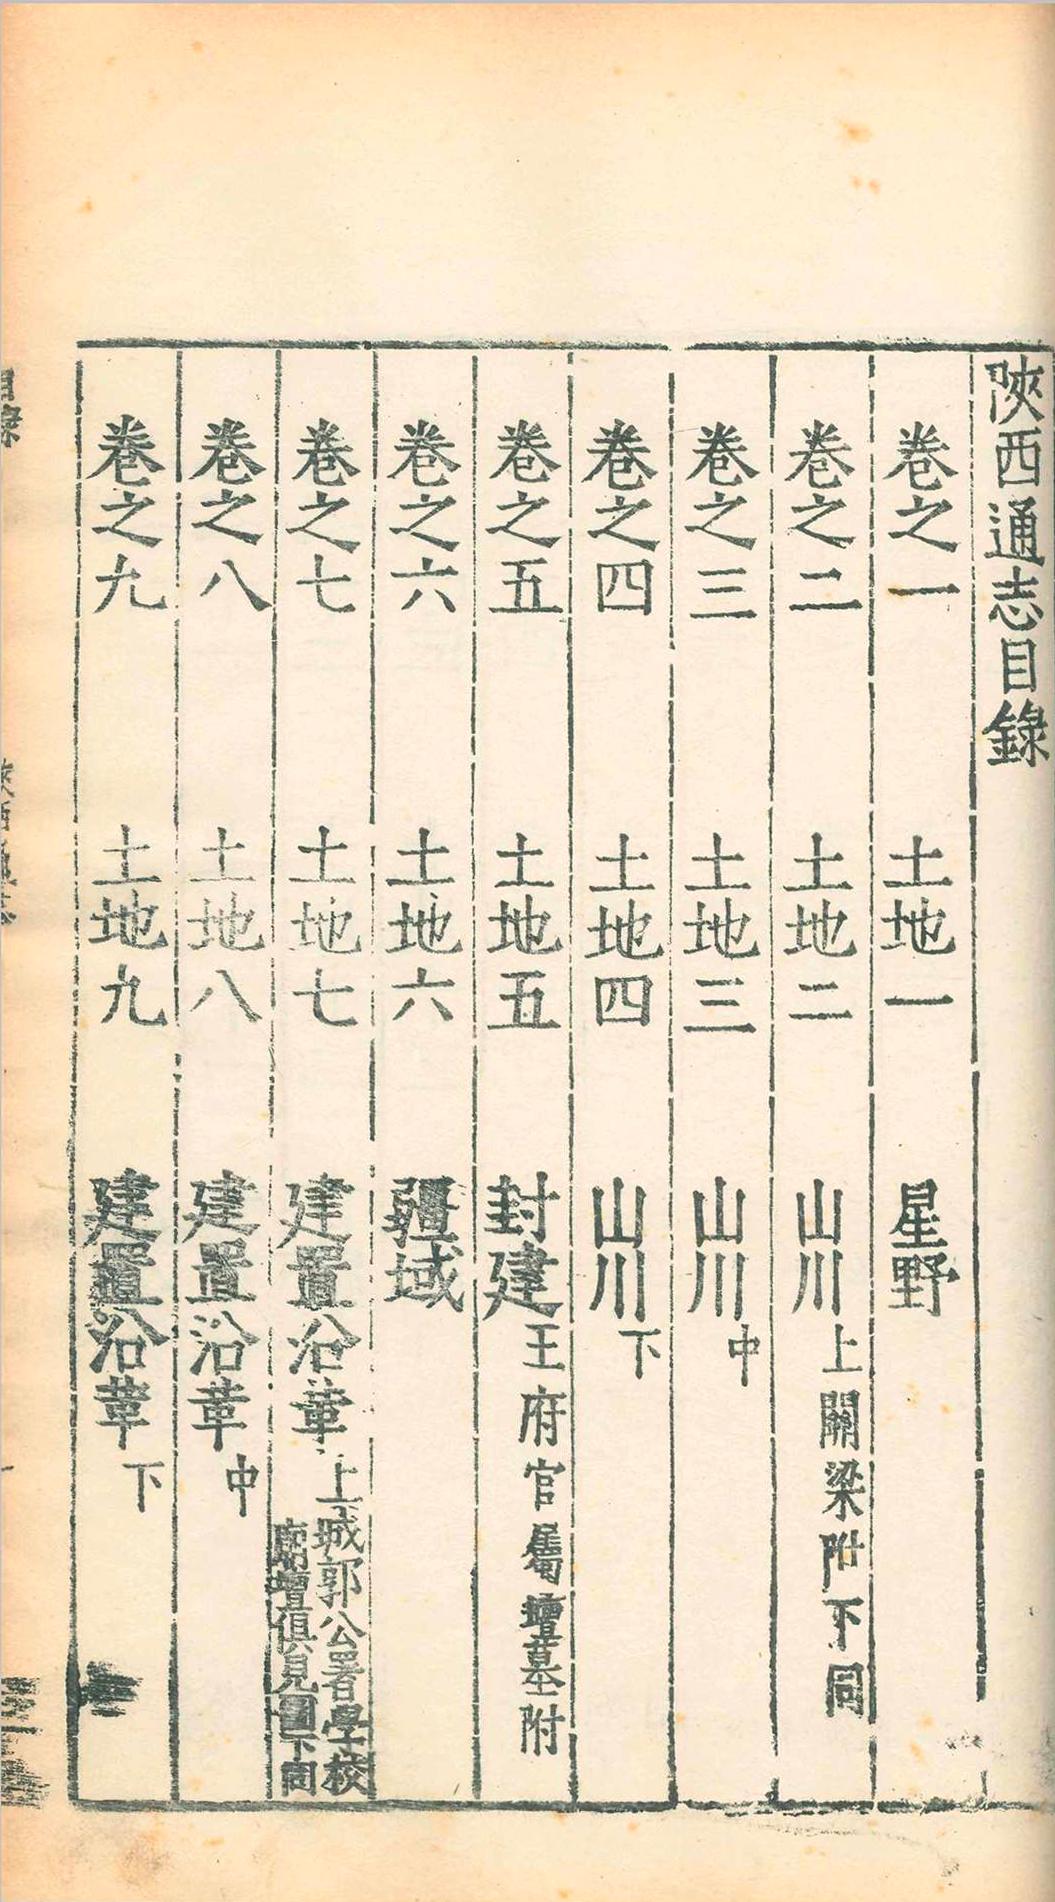 陝西通志目錄
卷之一 土地一 星野
卷之二 土地二 山川上關梁附下同
卷之三 土地三 山川中
卷之四 土地四 山川下
卷之五 土地五 封建王府官屬壇墓附
卷之六 土地六 疆域
卷之七 土地七 建置沿革上城郭公署學校廟壇俱見圖下同
卷之八 土地八 建置沿革中
卷之九 土地九 建置沿革下
目錄